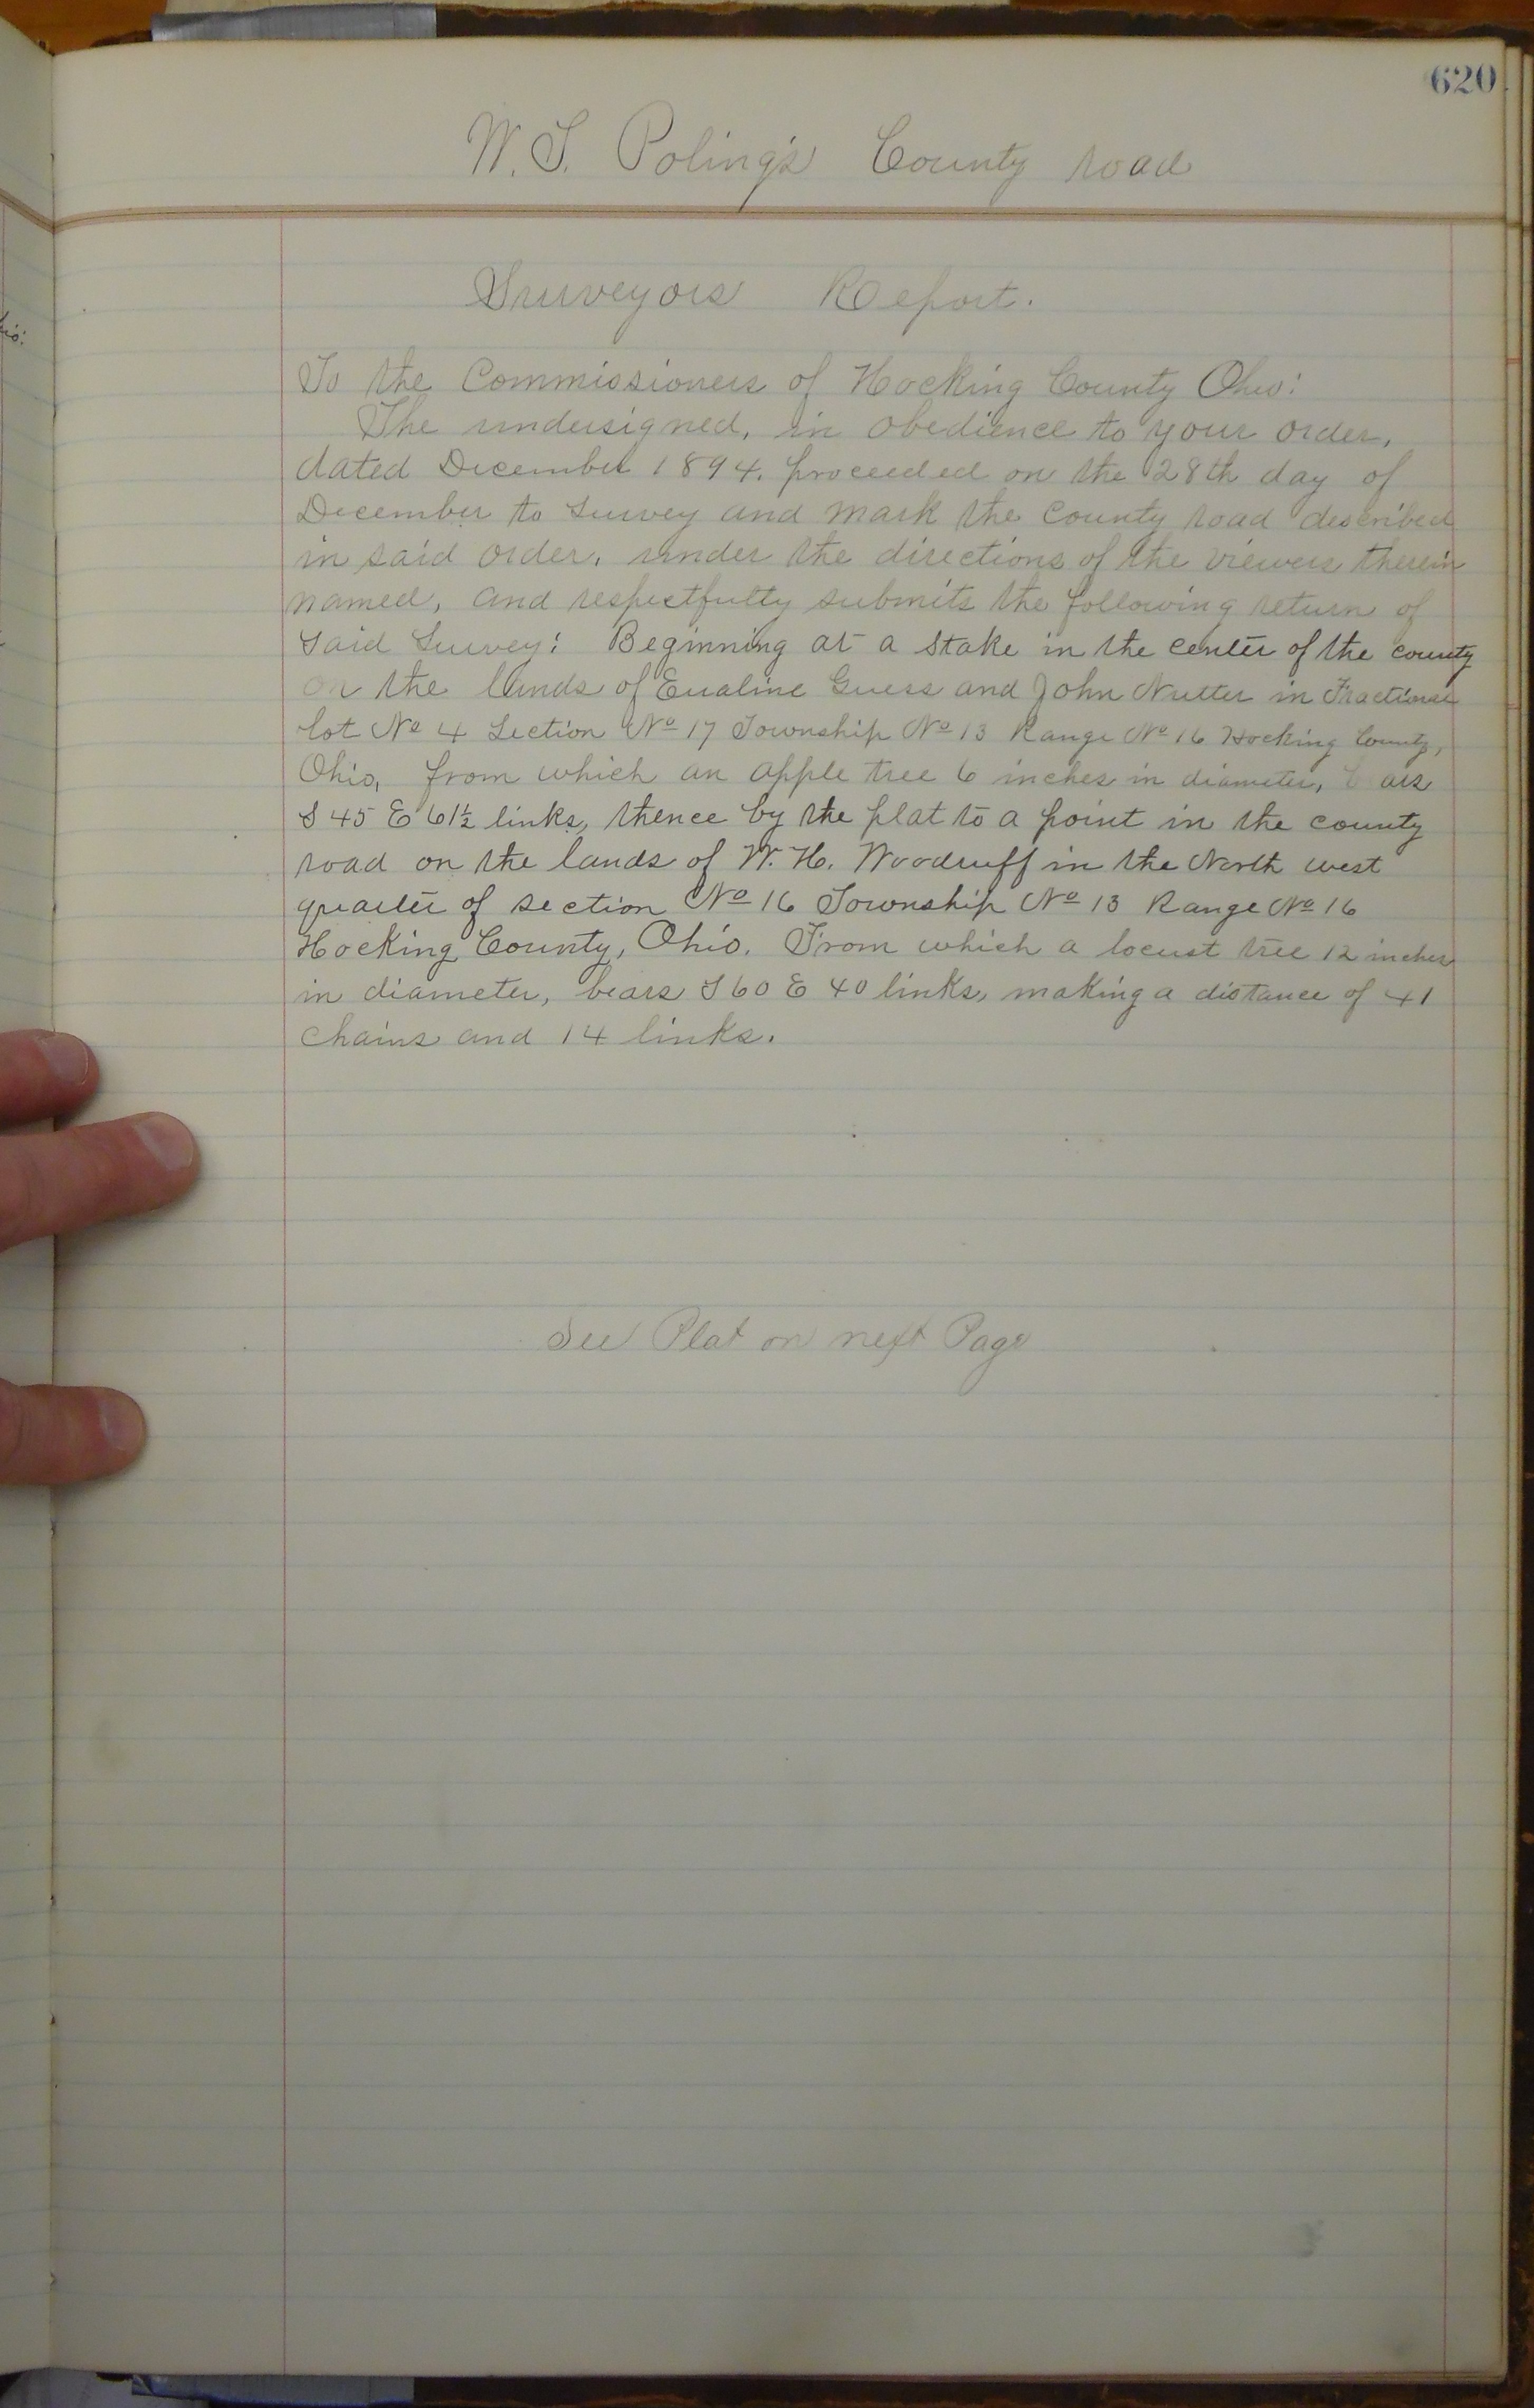 620
W. S. Poling's County road
Surveyors Report.
To the Commissioners of Hocking County Ohio:
The undersigned, in obedience to your order,
dated December 1894. proceeded on the 28th day of
December to survey and mark the County road described
in said order, under the directions of the viewers therein
named, and respectfully submits the following return of
said survey: Beginning at a stake in the center of the county
on the lands of Evaline Guess and John Nutter in Fractional
lot No 4 Section No 17 Township No 13 Range No 16 Hocking County,
Ohio, from which an apple tree 6 inches in diameter, bars
S 45 E 61½ links, thence by the plat to a point in the county
road on the lands of W. H. Woodruff in the North west
quarter of section No 16 Township No 13 Range No 16
Hocking County, Ohio. From which a locust tree 12 inches
in diameter, bears S 60 E 40 links, making a distance of 41
chains and 14 links.
See Plat on next Page